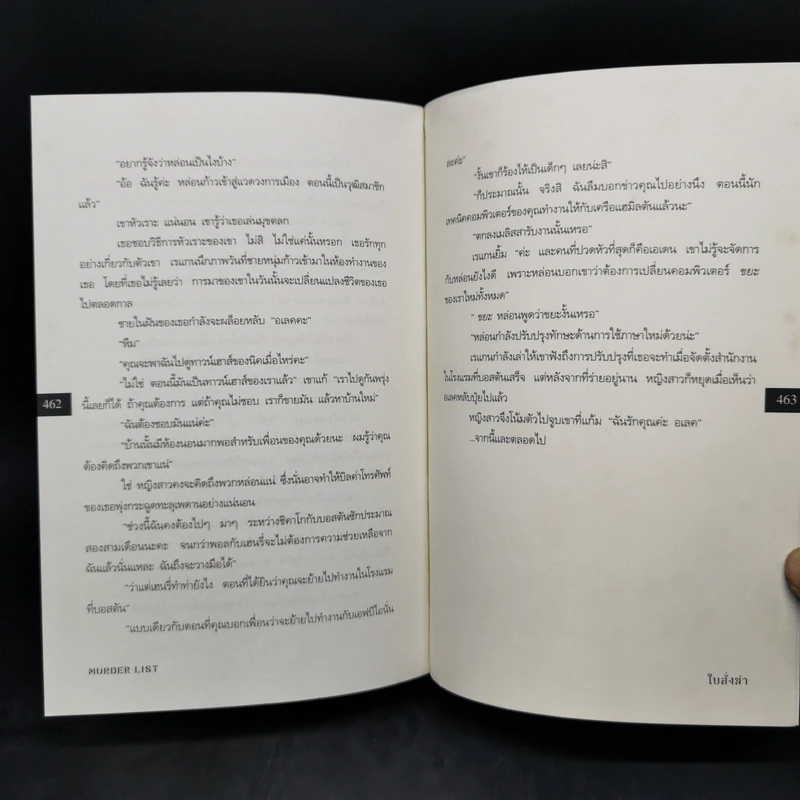 "อยากรู้จังว่าหล่อนเป็นไงบ้าง"
"อ้อ ฉันรู้ค่ะ หล่อนก้าวเข้าสู่แวดวงการเมือง ตอนนี้เป็นวุฒิสมาชิก
แล้ว"
เขาหัวเราะ แน่นอน เขารู้ว่าเธอเล่นมุขตลก
เธอชอบวิธีการหัวเราะของเขา ไม่สิ ไม่ใช่แค่นั้นหรอก เธอรักทุก
อย่างเกี่ยวกับตัวเขา เรแกนนึกภาพวันที่ชายหนุ่มก้าวเข้ามาในห้องทำงานของ
เธอ โดยที่เธอไม่รู้เลยว่า การมาของเขาในวันนั้นจะเปลี่ยนแปลงชีวิตของเธอ
ไปตลอดกาล
ชายในฝันของเธอกำลังจะผล็อยหลับ "อเลคคะ"
"หืม"
"คุณจะพาฉันไปดูทาวน์เฮาส์ของนิคเมื่อไหร่คะ"
"ไม่ใช่ ตอนนี้มันเป็นทาวน์เฮาส์ของเราแล้ว" เขาแก้ "เราไปดูกันพรุ่ง
นี้เลยก็ได้ ถ้าคุณต้องการ แต่ถ้าคุณไม่ชอบ เราก็ขายมัน แล้วหาบ้านใหม่"
"ฉันต้องชอบมันแน่ค่ะ"
"บ้านนั้นมีห้องนอนมากพอสำหรับเพื่อนของคุณด้วยนะ ผมรู้ว่าคุณ
ต้องคิดถึงพวกเขาแน่"
ใช่ หญิงสาวคงจะคิดถึงพวกหล่อนแน่ ซึ่งนั่นอาจทำให้บิลค่าโทรศัพท์
ของเธอพุ่งกระฉูดทะลุเพดานอย่างแน่นอน
"ช่วงนี้ฉันคงต้องไปๆ มาๆ ระหว่างชิคาโกกับบอสตันซักประมาณ
สองสามเดือนนะคะ จนกว่าพอลกับเฮนรี่จะไม่ต้องการความช่วยเหลือจาก
ฉันแล้วนั่นแหละ ฉันถึงจะวางมือได้"
"ว่าแต่เฮนรี่ทำท่ายังไง ตอนที่ได้ยินว่าคุณจะย้ายไปทำงานในโรงแรม
ที่บอสตัน"
"แบบเดียวกับตอนที่คุณบอกเพื่อนว่าจะย้ายไปทำงานกับเอฟบีไอนั่น
462
MURDER LIST
ละค่ะ"
"งั้นเขาก็ร้องไห้เป็นเด็กๆ เลยน่ะสิ"
"ก็ประมาณนั้น จริงสิ ฉันลืมบอกข่าวคุณไปอย่างนึง ตอนนี้นัก
เทคนิคคอมพิวเตอร์ของคุณทำงานให้กับเครือแฮมิลตันแล้วนะ"
"ตกลงเมลิสสารับงานนั้นเหรอ"
เรแกนยิ้ม "ค่ะ และคนที่ปวดหัวที่สุดก็คือเอเดน เขาไม่รู้จะจัดการ
กับหล่อนยังไงดี เพราะหล่อนบอกเขาว่าต้องการเปลี่ยนคอมพิวเตอร์ ขยะ
ของเราใหม่ทั้งหมด"
" ขยะ หล่อนพูดว่าขยะงั้นเหรอ"
"หล่อนกำลังปรับปรุงทักษะด้านการใช้ภาษาใหม่ด้วยน่ะ"
เรแกนกำลังเล่าให้เขาฟังถึงการปรับปรุงที่เธอจะทำเมื่อจัดตั้งสำนักงาน
ในโรงแรมที่บอสตันเสร็จ แต่หลังจากที่ร่ายอยู่นาน หญิงสาวก็หยุดเมื่อเห็นว่า
อเลคหลับปุ๋ยไปแล้ว
หญิงสาวจึงโน้มตัวไปจูบเขาที่แก้ม "ฉันรักคุณค่ะ อเลค"
...จากนี้และตลอดไป
463
ใบสั่งฆ่า